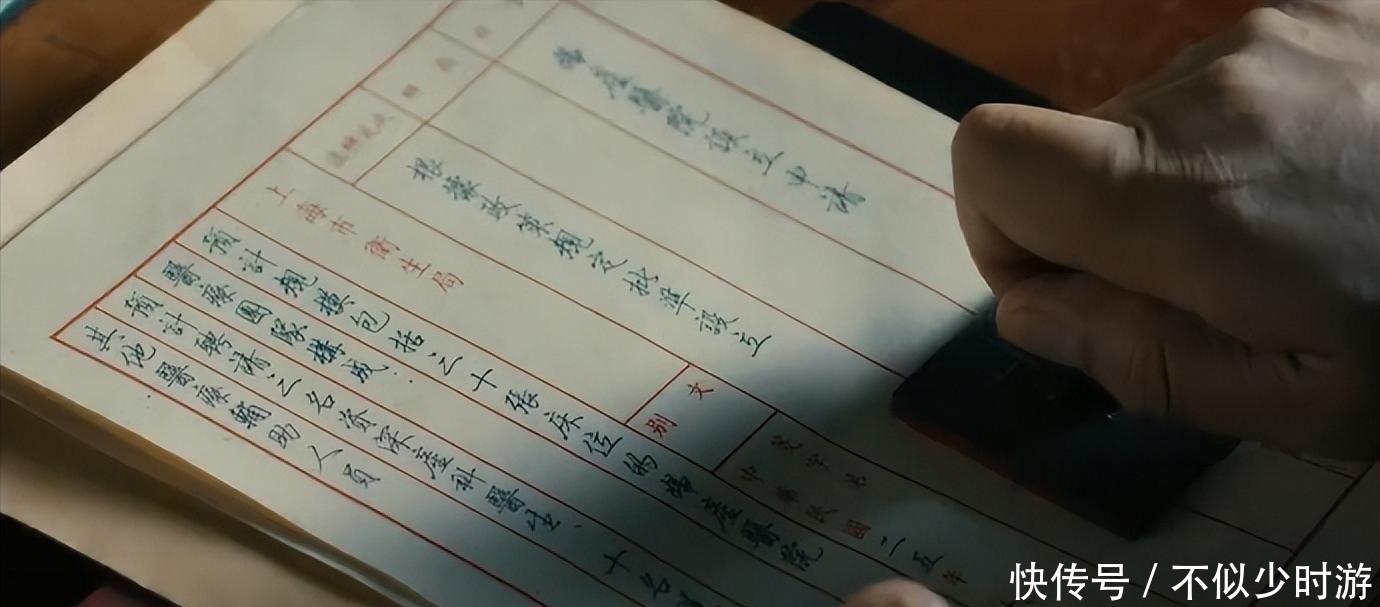 婦產醫院設立申請
根據政策規定批準設立
文別
字第
中華民國二五年
上海市衛生局
預計規模包括二十張床位的婦產醫院
醫療團隊構成：
預計聘請二名資深產科醫生、十名
其他醫療輔助人員
快传号 / 不似少时游